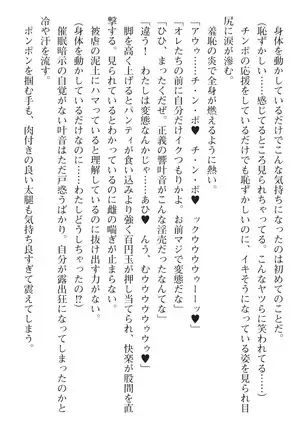 身体を動かしているだけでこんな気持ちになったのは初めてのことだ。
(恥ずかしい……感じてるところ見られちゃってる。こんなヤツらに笑われてる……)
チンポの応援をしているだけでも恥ずかしいのに、イキそうになっている姿を見られ目
尻に涙が滲む。
羞恥の炎で全身が燃えるように熱い。
「アウゥ♥　チ・ン・ポ♥　チ・ン・ポ♥　ックウウウウゥーーッ♥」
「オレたちの前に自分だけイクつもりかよ。お前マジで変態だな」
「ひひ、まったくだぜ。正義の響叶音がこんな淫売だったなんてな」
「違う！　わたしは変態なんかじゃ……あひ♥　んぅ、むウウウウゥウゥゥ♥」
脚を高く上げるとパンティが食い込みより強く百円玉が押し当てられ、快楽が股間を直
撃する。見られているとわかっているのに雌の喘ぎが止まらない。
被虐の泥土にハマっていると理解しているのに抜け出す力がない。
(身体を動かしているだけなのに……わたしどうしちゃったの!?)
催眠暗示の自覚がない叶音はただ戸惑うばかり。自分が露出狂になってしまったのかと
冷や汗を流す。
ポンポンを掴む手も、肉付きの良い太腿も気持ち良すぎて震えてしまう。